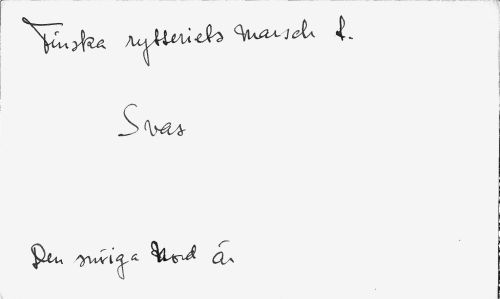 Finska rytteriets marsch f.
Svas
Den snöiga Nord är